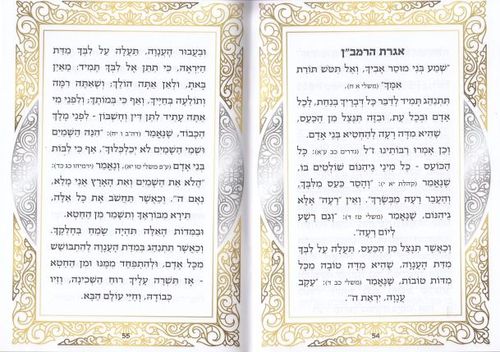 אגרת הרמב"ן
"שְׁמַע בְּנִי מוּסַר אָבִיךָ, וְאַל תִּטֹּשׁ תּוֹרַת
אִמֶּךָ" (משלי א ח).
תִּתְנַהֵג תָּמִיד לְדַבֵּר כָּל דְּבָרֶיךָ בְּנַחַת, לְכָל
אָדָם וּבְכָל עֵת, וּבָזֶה תִּנָּצֵל מִן הַכַּעַס,
שֶׁהִיא מִדָּה רָעָה לְהַחְטִיא בְּנֵי אָדָם.
וְכֵן אָמְרוּ רַבּוֹתֵינוּ ז"ל (נדרים כב ע"א): כָּל
הַכּוֹעֵס - כָּל מִינֵי גֵיהִנּוֹם שׁוֹלְטִים בּוֹ,
שֶׁנֶּאֱמַר (קהלת יא י): "וְהָסֵר כַּעַס מִלִּבֶּךָ,
וְהַעֲבֵר רָעָה מִבְּשָׂרֶךָ". וְאֵין "רָעָה" אֶלָּא
גֵיהִנּוֹם, שֶׁנֶּאֱמַר (משלי טז ד): "וְגַם רָשָׁע
לְיוֹם רָעָה".
וְכַאֲשֶׁר תִּנָּצֵל מִן הַכַּעַס, תַּעֲלֶה עַל לִבְּךָ
מִדַּת הָעֲנָוָה, שֶׁהִיא מִדָּה טוֹבָה מִכָּל
מִדּוֹת טוֹבוֹת, שֶׁנֶּאֱמַר (משלי כב ד): "עֵקֶב
עֲנָוָה, יִרְאַת ה'".
54
וּבַעֲבוּר הָעֲנָוָה, תַּעֲלֶה עַל לִבְּךָ מִדַּת
הַיִּרְאָה, כִּי תִתֵּן אֶל לִבְּךָ תָּמִיד: מֵאַיִן
בָּאתָ, וּלְאָן אַתָּה הוֹלֵךְ, וְשֶׁאַתָּה רִמָּה
וְתוֹלֵעָה בְּחַיֶּיךָ, וְאַף כִּי בְּמוֹתֶךָ, וְלִפְנֵי מִי
אַתָּה עָתִיד לִתֵּן דִּין וְחֶשְׁבּוֹן - לִפְנֵי מֶלֶךְ
הַכָּבוֹד, שֶׁנֶּאֱמַר (דה"ב ו יח): "הִנֵּה הַשָּׁמַיִם
וּשְׁמֵי הַשָּׁמַיִם לֹא יְכַלְכְּלוּךָ", אַף כִּי לִבּוֹת
בְּנֵי אָדָם (ע"פ משלי טו יא), וְנֶאֱמַר (ירמיהו כג כד):
"הֲלֹא אֶת הַשָּׁמַיִם וְאֶת הָאָרֶץ אֲנִי מָלֵא,
נְאֻם ה'". וְכַאֲשֶׁר תַּחְשֹׁב אֶת כָּל אֵלֶּה,
תִּירָא מִבּוֹרַאֲךָ וְתִשָּׁמֵר מִן הַחֵטְא.
וּבְמִדּוֹת הָאֵלֶּה תִּהְיֶה שָׂמֵחַ בְּחֶלְקֶךָ.
וְכַאֲשֶׁר תִּתְנַהֵג בְּמִדַּת הָעֲנָוָה לְהִתְבּוֹשֵׁשׁ
מִכָּל אָדָם, וּלְהִתְפַּחֵד מִמֶּנּוּ וּמִן הַחֵטְא
- אָז תִּשְׁרֶה עָלֶיךָ רוּחַ הַשְּׁכִינָה, וְזִיו
כְּבוֹדָהּ, וְחַיֵּי עוֹלָם הַבָּא.
55